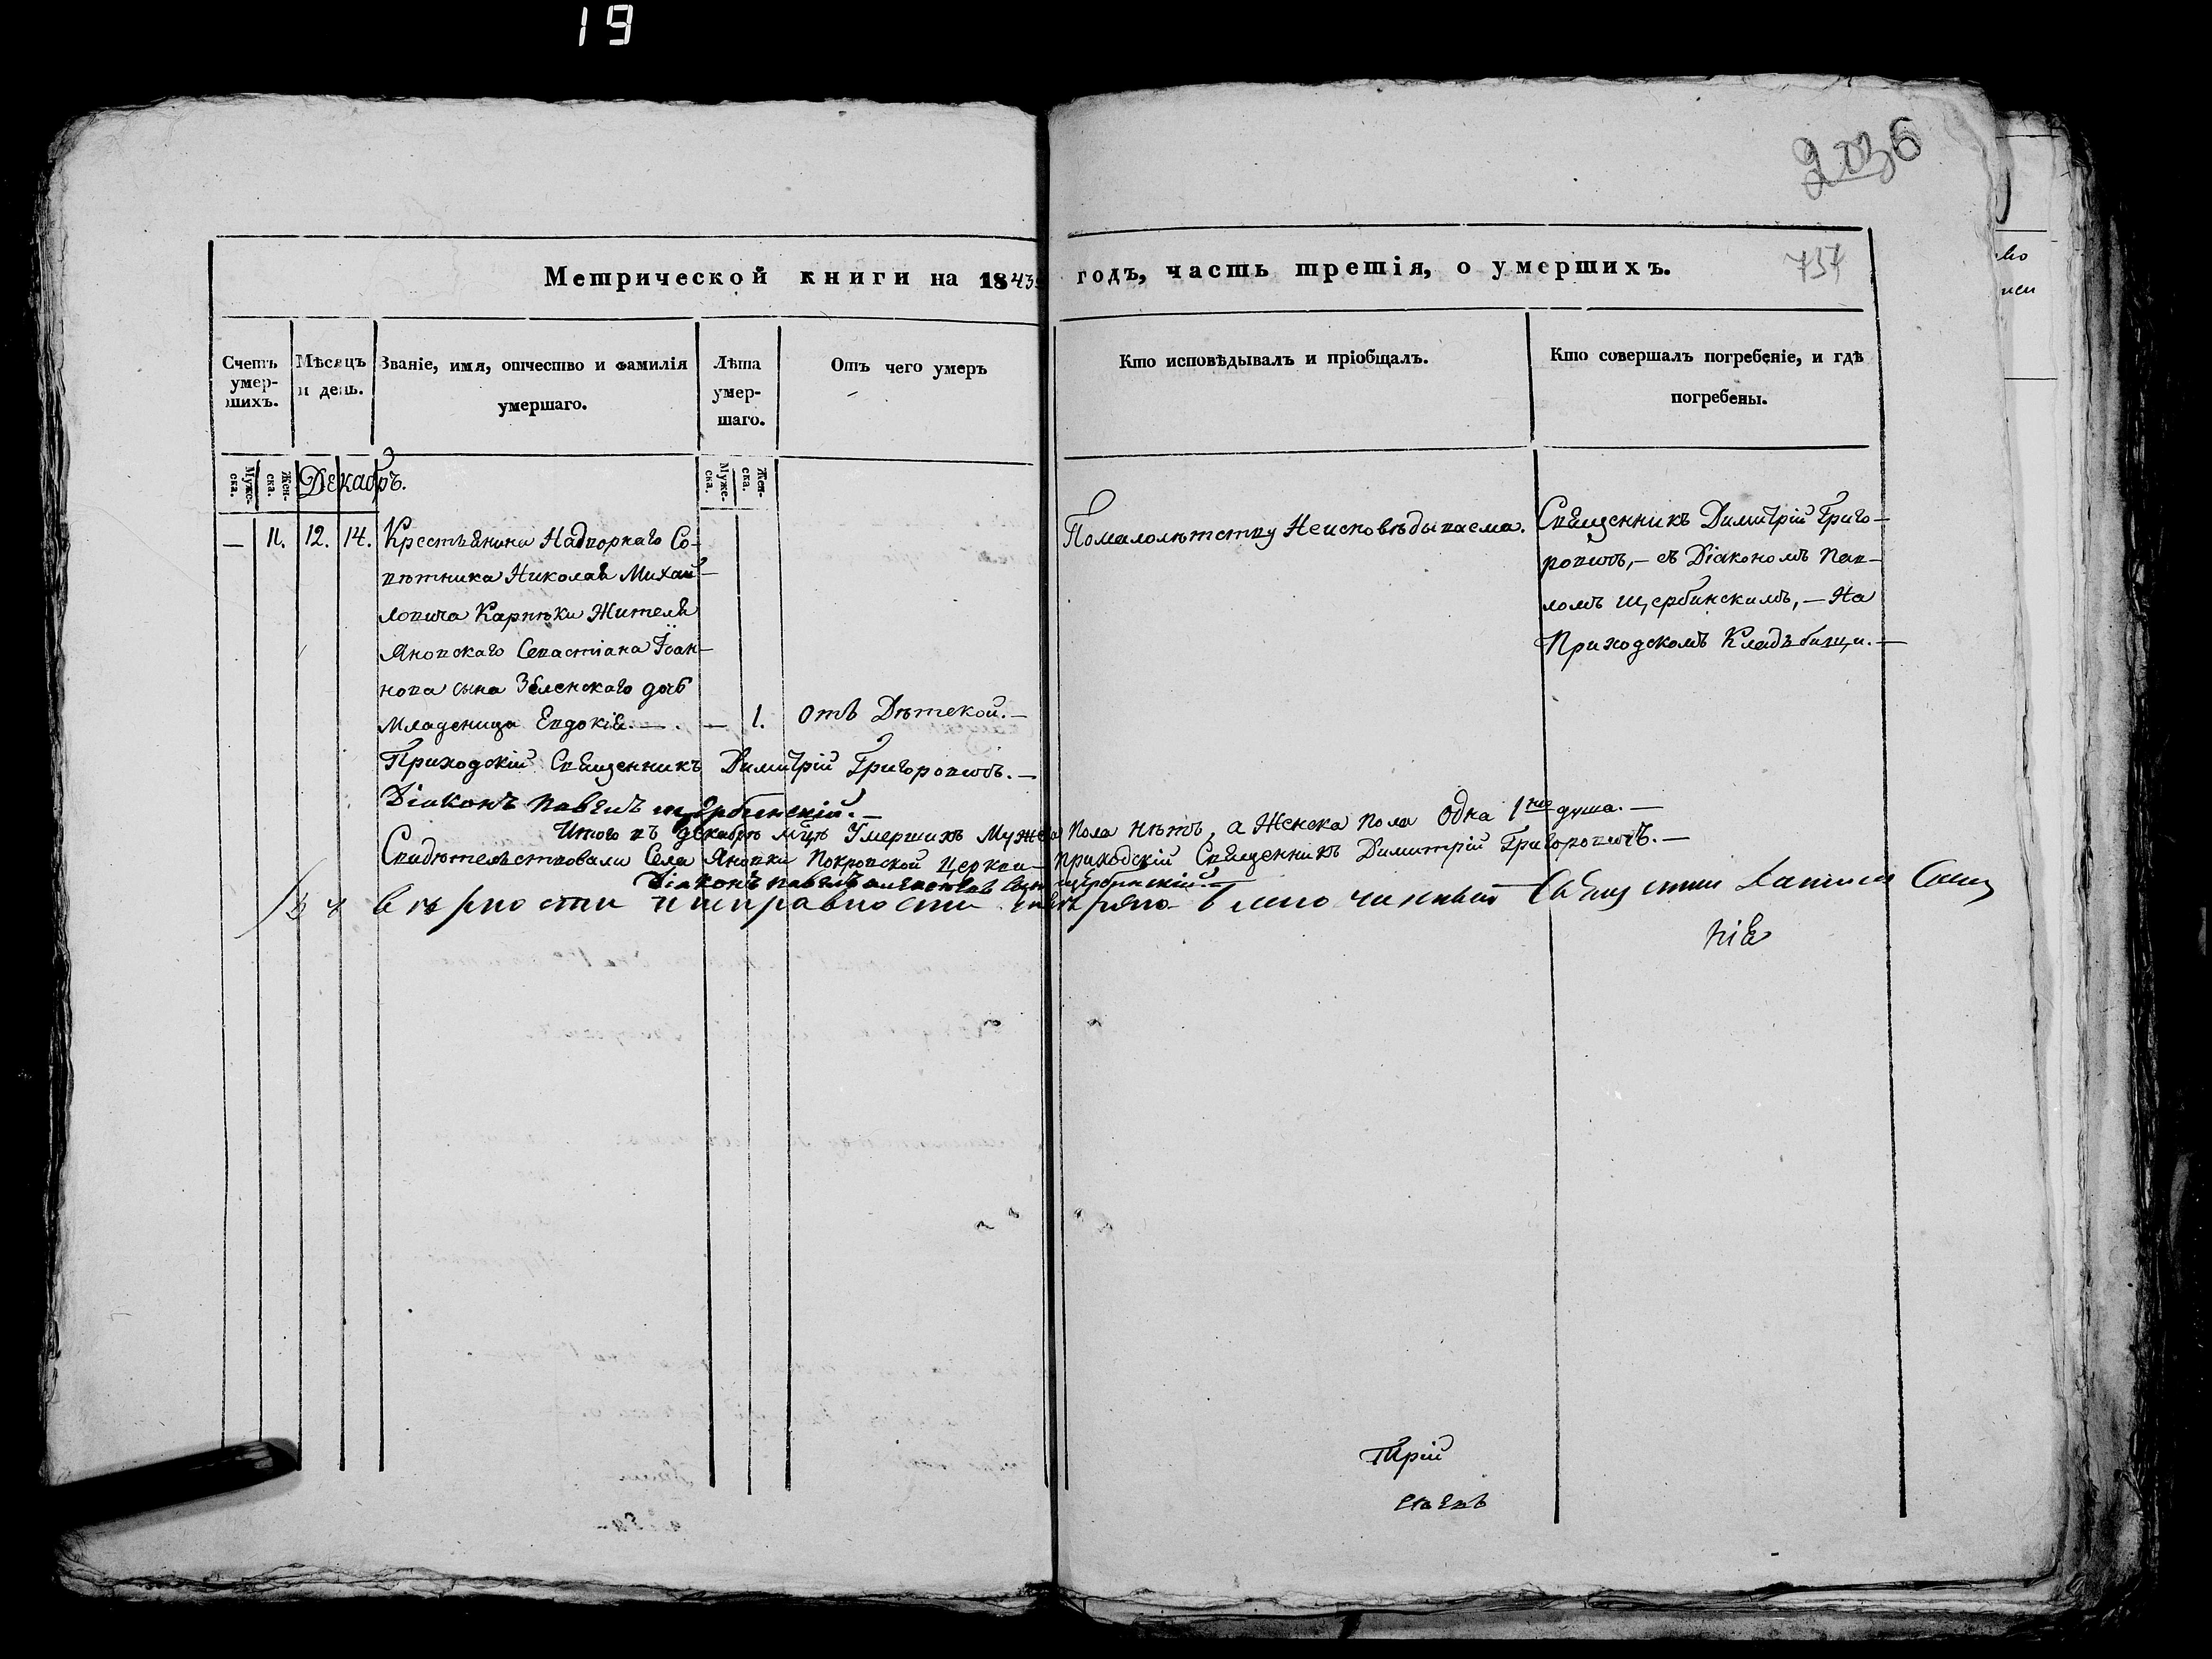 19
2036
Метрической книги на 1843й годъ, часть третія, о умершихъ.
737
Счетъ умер-шихъ.
Мѣсяцъ и день.
Званіе, имя, отчество и фамилія умершаго.
Лѣта умер-шаго.
Отъ чего умеръ
Кто исповѣдывалъ и пріобщалъ.
Кто совершалъ погребеніе, и гдѣ погребены.
Муже-ска.
Жен-ска.
Декабръ.
Муже-ска.
Жен-ска.
— 11. 12. 14. Крестьянина Надворнаго Со-
вѣтника Николая Михай-
ловича Карпѣки Жителя
Яновскаго Севастіана Іоан-
нова сына Зеленскаго дочь
Младеница Евдокія. — — 1. Отъ Дѣтской. —
Помалолѣтству Неисповѣдываема.
Священникъ Димитрій Григо-
ровичъ, — съ Діакономъ Пав-
ломъ Щербинскимъ, — На
Приходскомъ Кладъбищи. —
Приходскій Священникъ Димитрій Григоровичъ. —
Діаконъ Павелъ Щербинскій. —
Итого въ декабрѣ мцѣ Умершихъ Мужеска Пола нѣтъ, а Женска Пола Одна 1 душа. —
Свидѣтельствовали Села Яновки Покровской Церкви — приходскій Священникъ Димитрій Григоровичъ. —
Діаконъ Павелъ Щербинскій. —
въ вѣрности и исправности Благочинный Священникъ
трій